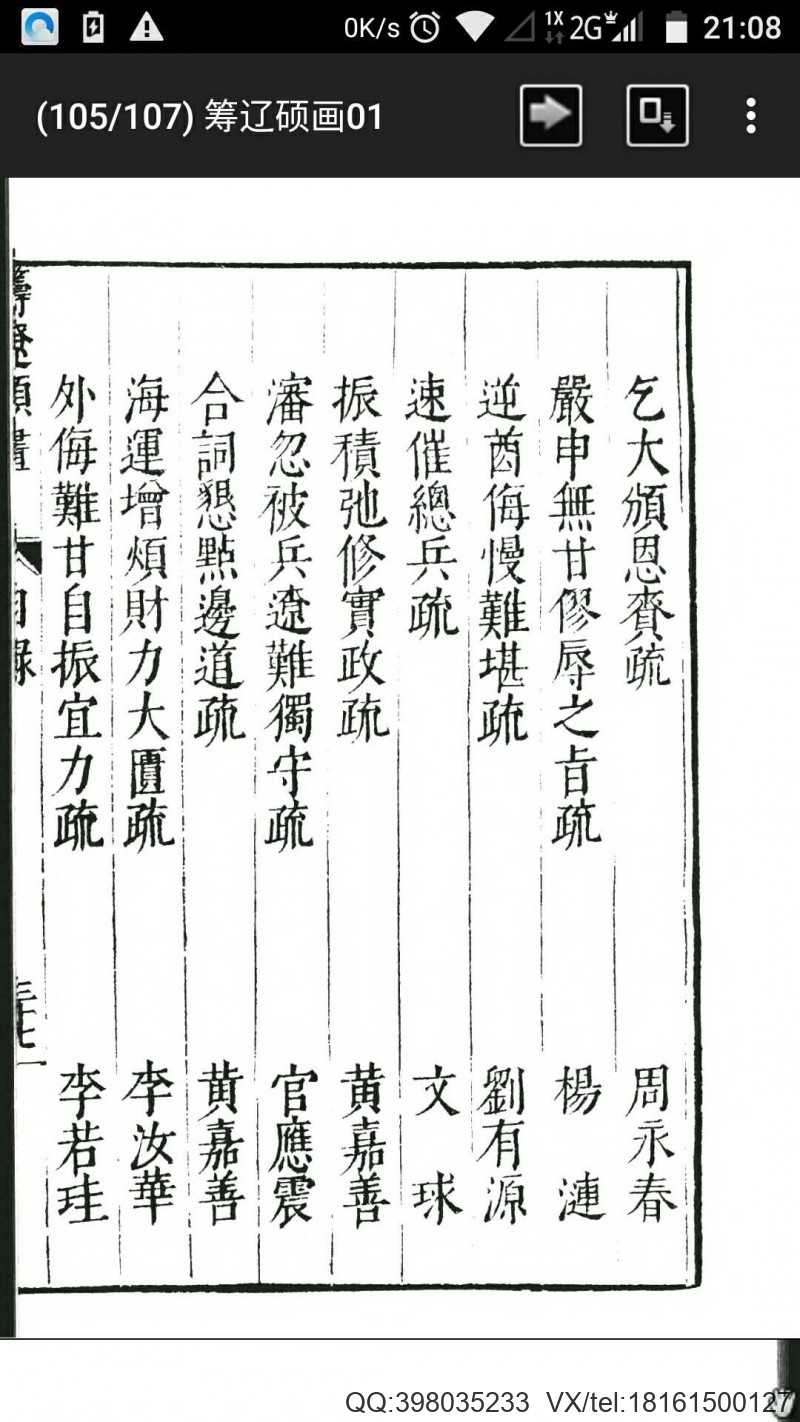 0K/s 1X 2G 21:08
(105/107) 筹辽硕画01
乞大頒恩賚疏 周永春
嚴申無甘僇辱之旨疏 楊漣
逆酋侮慢難堪疏 劉有源
速催總兵疏 文球
振積弛修實政疏 黃嘉善
瀋忽被兵遼難獨守疏 官應震
合詞懇點邊道疏 黃嘉善
海運增煩財力大匱疏 李汝華
外侮難甘自振宜力疏 李若珪
籌遼碩畫 目錄
QQ:398035233 VX/tel:18161500127